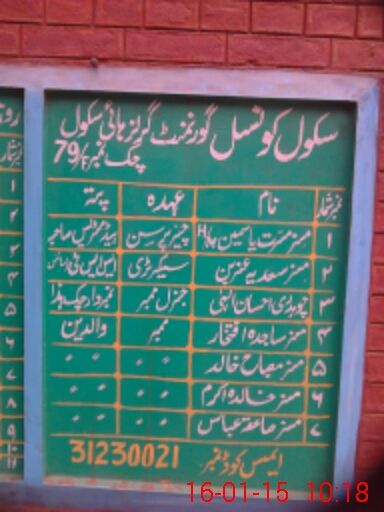 سکول کونسل گورنمنٹ گرلز ہائی سکول
چک نمبر 79/
نمبر شمار نام عہدہ پتہ
۱ مسز مسرت یاسمین چیئرپرسن ہیڈمسٹریس صاحبہ
۲ مسز سعدیہ عنبرین سیکرٹری ایس ایس ٹی سائنس
۳ چوہدری احسان الٰہی جنرل ممبر نمبردار چک ہذا
۴ مسز ساجدہ افتخار ممبر والدین
۵ مسز مصباح خالد " " " "
۶ مسز خالدہ اکرم " " " "
۷ مسز صاعقہ عباس " " " "
ایمس کوڈ نمبر 31230021
۱
۲
۳
۴
۵
۶
۷
۸
۹
16-01-15 10:18